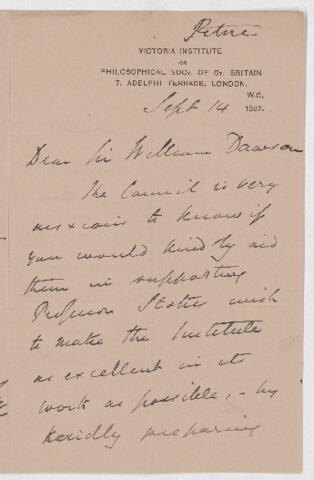 VICTORIA INSTITUTE
OR
PHILOSOPHICAL SOCY. OF GT. BRITAIN
7, ADELPHI TERRACE, LONDON.
W.C.
Sept 14 1887.
Dear Sir William Dawson
The Council is very
anxious to know if
you would kindly aid
them in supporting
Professor Stokes wish
to make the Institute
as excellent in its
work as possible, - by
kindly preparing